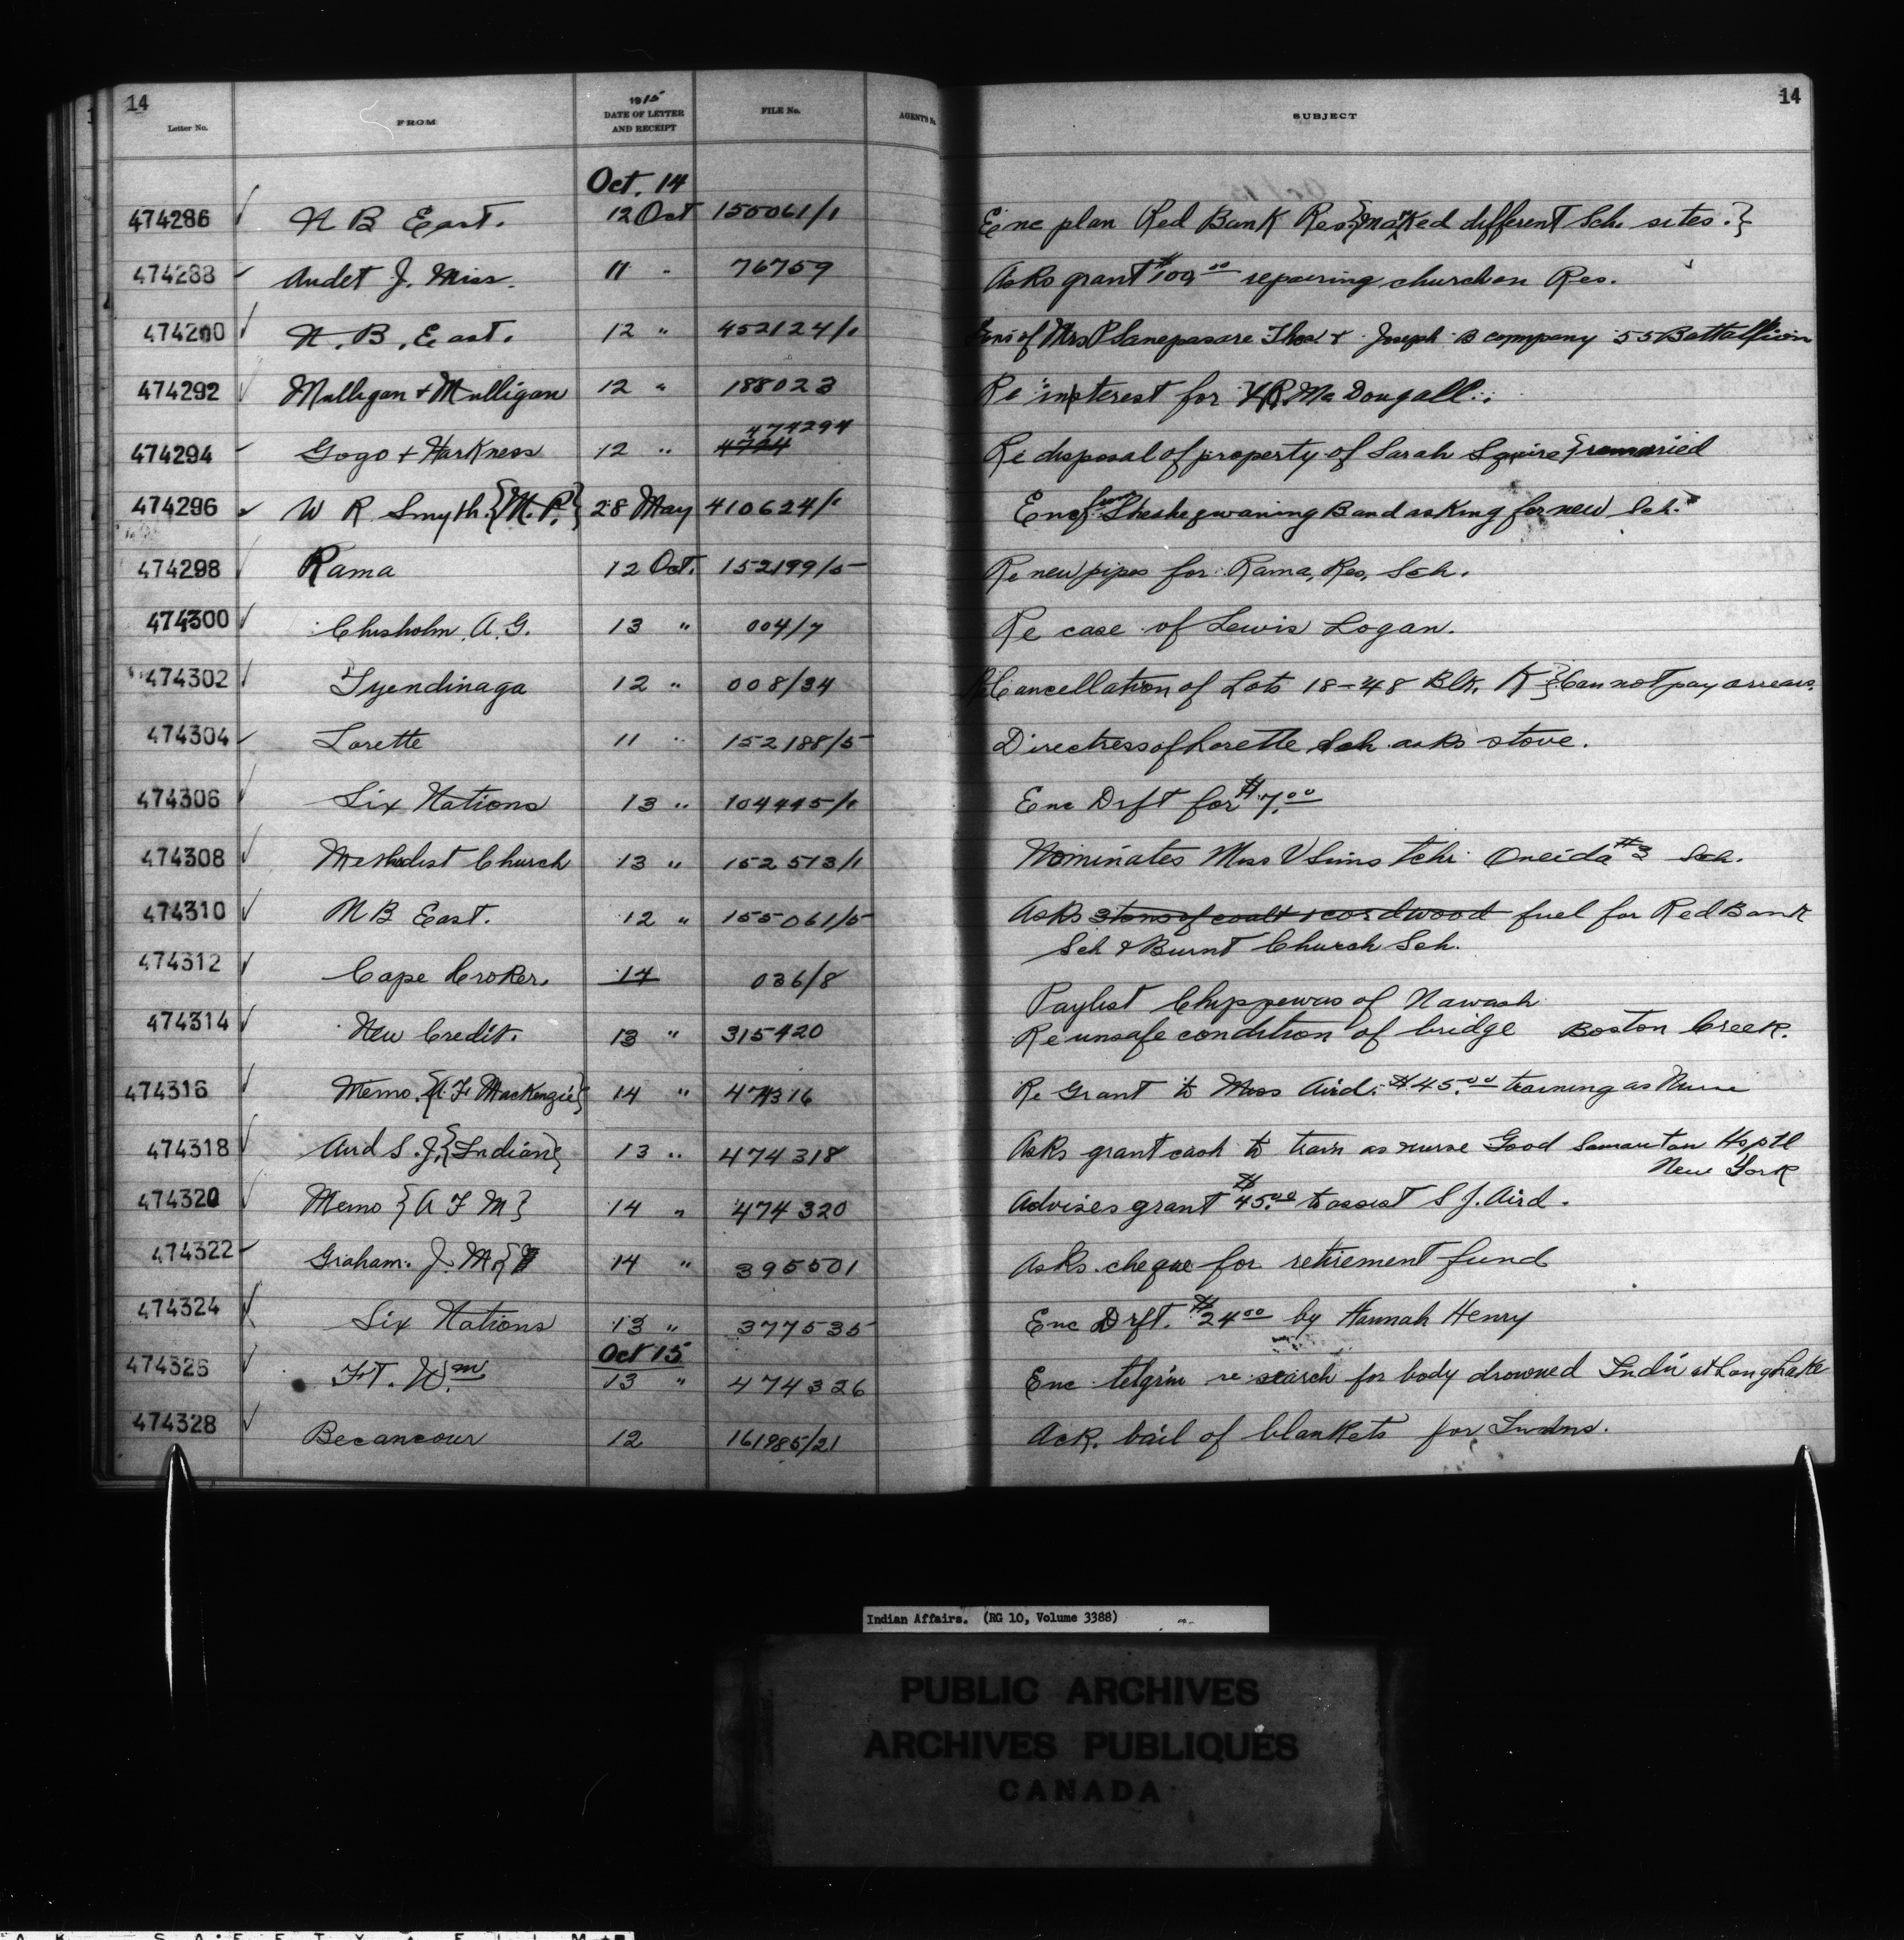 14
14
Letter No.
FROM
1915
DATE OF LETTER AND RECEIPT
FILE No.
AGENT'S No.
SUBJECT
Oct. 14
474286 N B East. 12 Oct 155061/1 Enc plan Red Bank Res {marked different Sch. sites.}
474288 Audet J. Miss. 11 " 76759 Asks grant $100.00 repairing church on Res.
474290 N. B. East. 12 " 452124/1 Sons of Mrs P + Joseph B company 55 Battallion
474292 Mulligan + Mulligan 12 " 188023 Re interest for McDougall.
474294 Gogo + Harkness 12 " 4724 474294 Re disposal of property of Sarah Squire} remarried
474296 W R Smyth {M.P.} 28 May 410624/1 Enc from Sheshegwaning Band asking for new Sch.
474298 Rama 12 Oct. 152199/5 Re new pipes for Rama, Res, Sch.
474300 Chisholm. A.G. 13 " 004/7 Re case of Lewis Logan.
474302 Tyendinaga 12 " 008/34 Re Cancellation of Lots 18-48 Blk. K } Can not pay arrears.
474304 Lorette 11 " 152188/5 Directress of Lorette Sch. asks stove.
474306 Six Nations 13 " 104445/1 Enc Drft for $7.00
474308 Methodist Church 13 " 152513/1 Nominates Miss V Sims tchr Oneida #3 Sch.
474310 N B East. 12 " 155061/5 Asks 3 tons of coal + 1 cord wood fuel for Red Bank
Sch & Burnt Church Sch.
474312 Cape Croker. 14 036/8 Paylist Chippewas of Nawash
474314 New Credit. 13 " 315420 Re unsafe condition of bridge Boston Creek.
474316 Memo. {A.F. MacKenzie} 14 " 474316 Re Grant to Miss Aird. $45.00 training as Nurse
474318 Aird S. J. {Indian} 13 " 474318 Asks grant cash to train as nurse Good Samaritan Hsptl
New York
474320 Memo {A F M} 14 " 474320 Advises grant $45.00 to assist S J. Aird.
474322 Graham. J. M. 14 " 395501 Asks cheque for retirement fund
474324 Six Nations 13 " 377535 Enc Drft. $24.00 by Hannah Henry
Oct 15
474326 Ft. Wm 13 " 474326 Enc telgrm re search for body drowned Indn at Long Lake
474328 Becancour 12 161985/21 Ack. bail of blankets for Indns.
Indian Affairs. (RG 10, Volume 3388)
PUBLIC ARCHIVES
ARCHIVES PUBLIQUES
CANADA